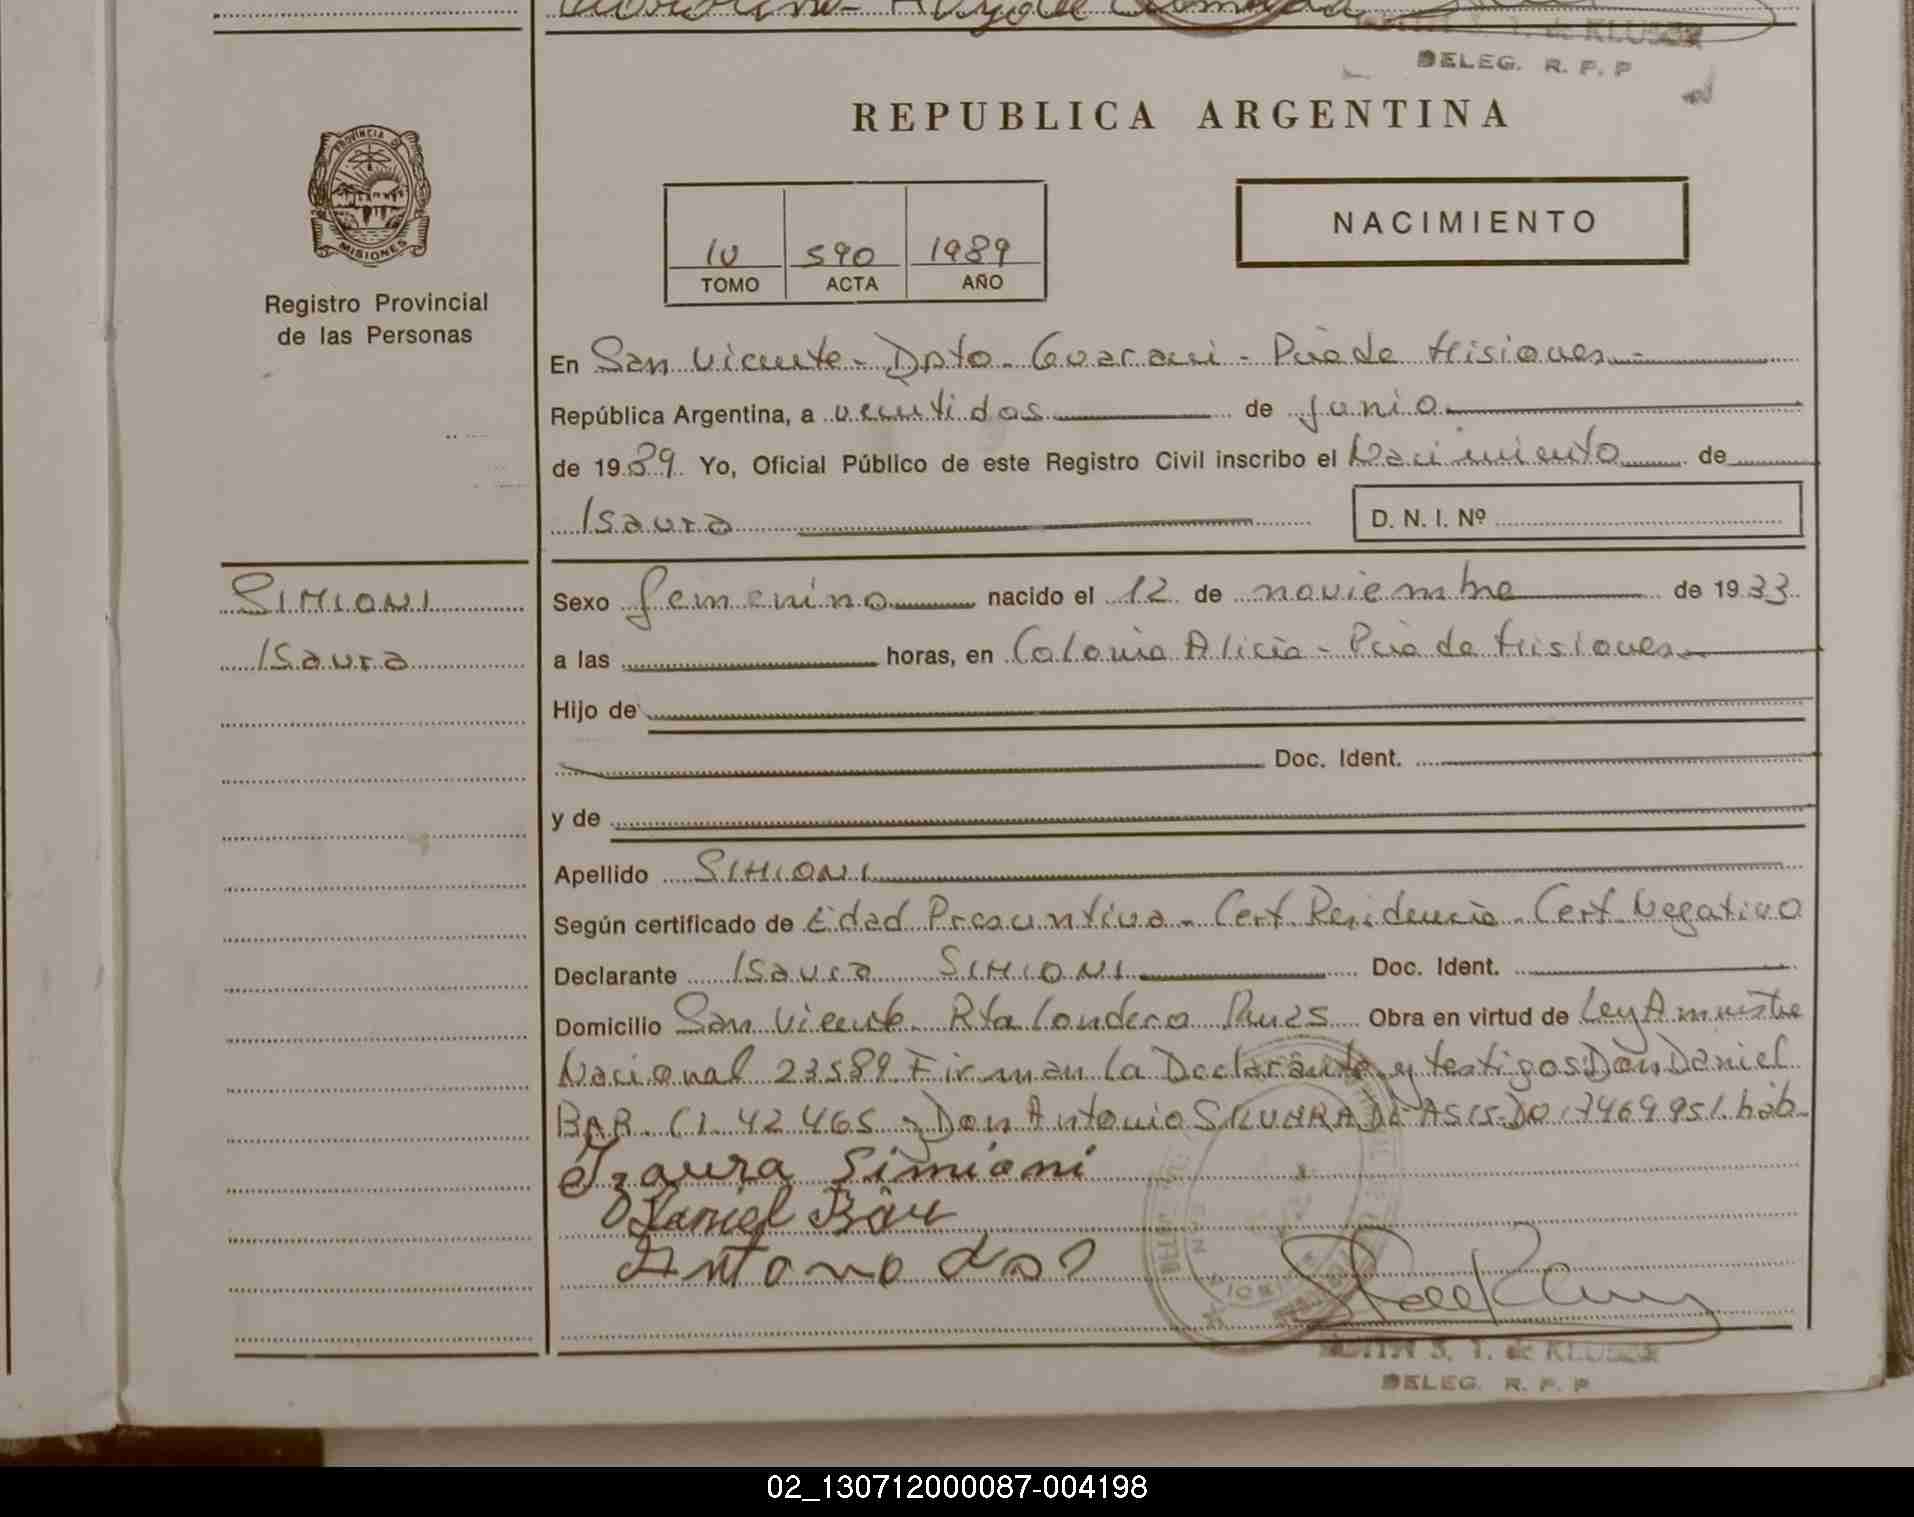 DELEG. R. P. P
REPUBLICA ARGENTINA
PROVINCIA DE
MISIONES
Registro Provincial
de las Personas
IV 590 1989
TOMO ACTA AÑO
NACIMIENTO
En San Vicente - Dpto - Guarani - Pcia de Misiones -
República Argentina, a veintidos de junio
de 1989 Yo, Oficial Público de este Registro Civil inscribo el Nacimiento de
Isaura D. N. I. Nº
SIMIONI
Isaura
Sexo femenino nacido el 12 de noviembre de 1933
a las horas, en Colonia Alicia - Pcia de Misiones -
Hijo de
Doc. Ident.
y de
Apellido SIMIONI
Según certificado de Edad Presuntiva - Cert. Residencia - Cert Negativo
Declarante Isaura SIMIONI Doc. Ident.
Domicilio San Vicente - Rta Londero Obra en virtud de Ley Amnistia
Nacional 23589 Firman la Declarante y testigos Don Daniel
BAR. CI. 42.465 - Don Antonio DE ASIS - 7.469.951. hab.
Izaura Simioni
Daniel Bär
Antonio
S. T. de KLUSER
DELEG. R. P. P
02_130712000087-004198